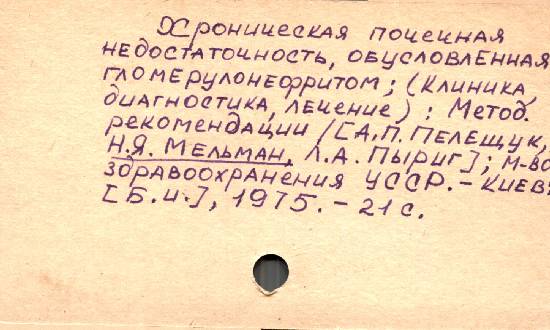 Хроническая почечная
недостаточность, обусловленная
гломерулонефритом; (Клиника,
диагностика, лечение): Метод.
рекомендации / [А.П. Пелещук,
Н.Я. Мельман, Л.А. Пыриг]; М-во
здравоохранения УССР. - Киев:
[Б.и.], 1975. - 21 с.